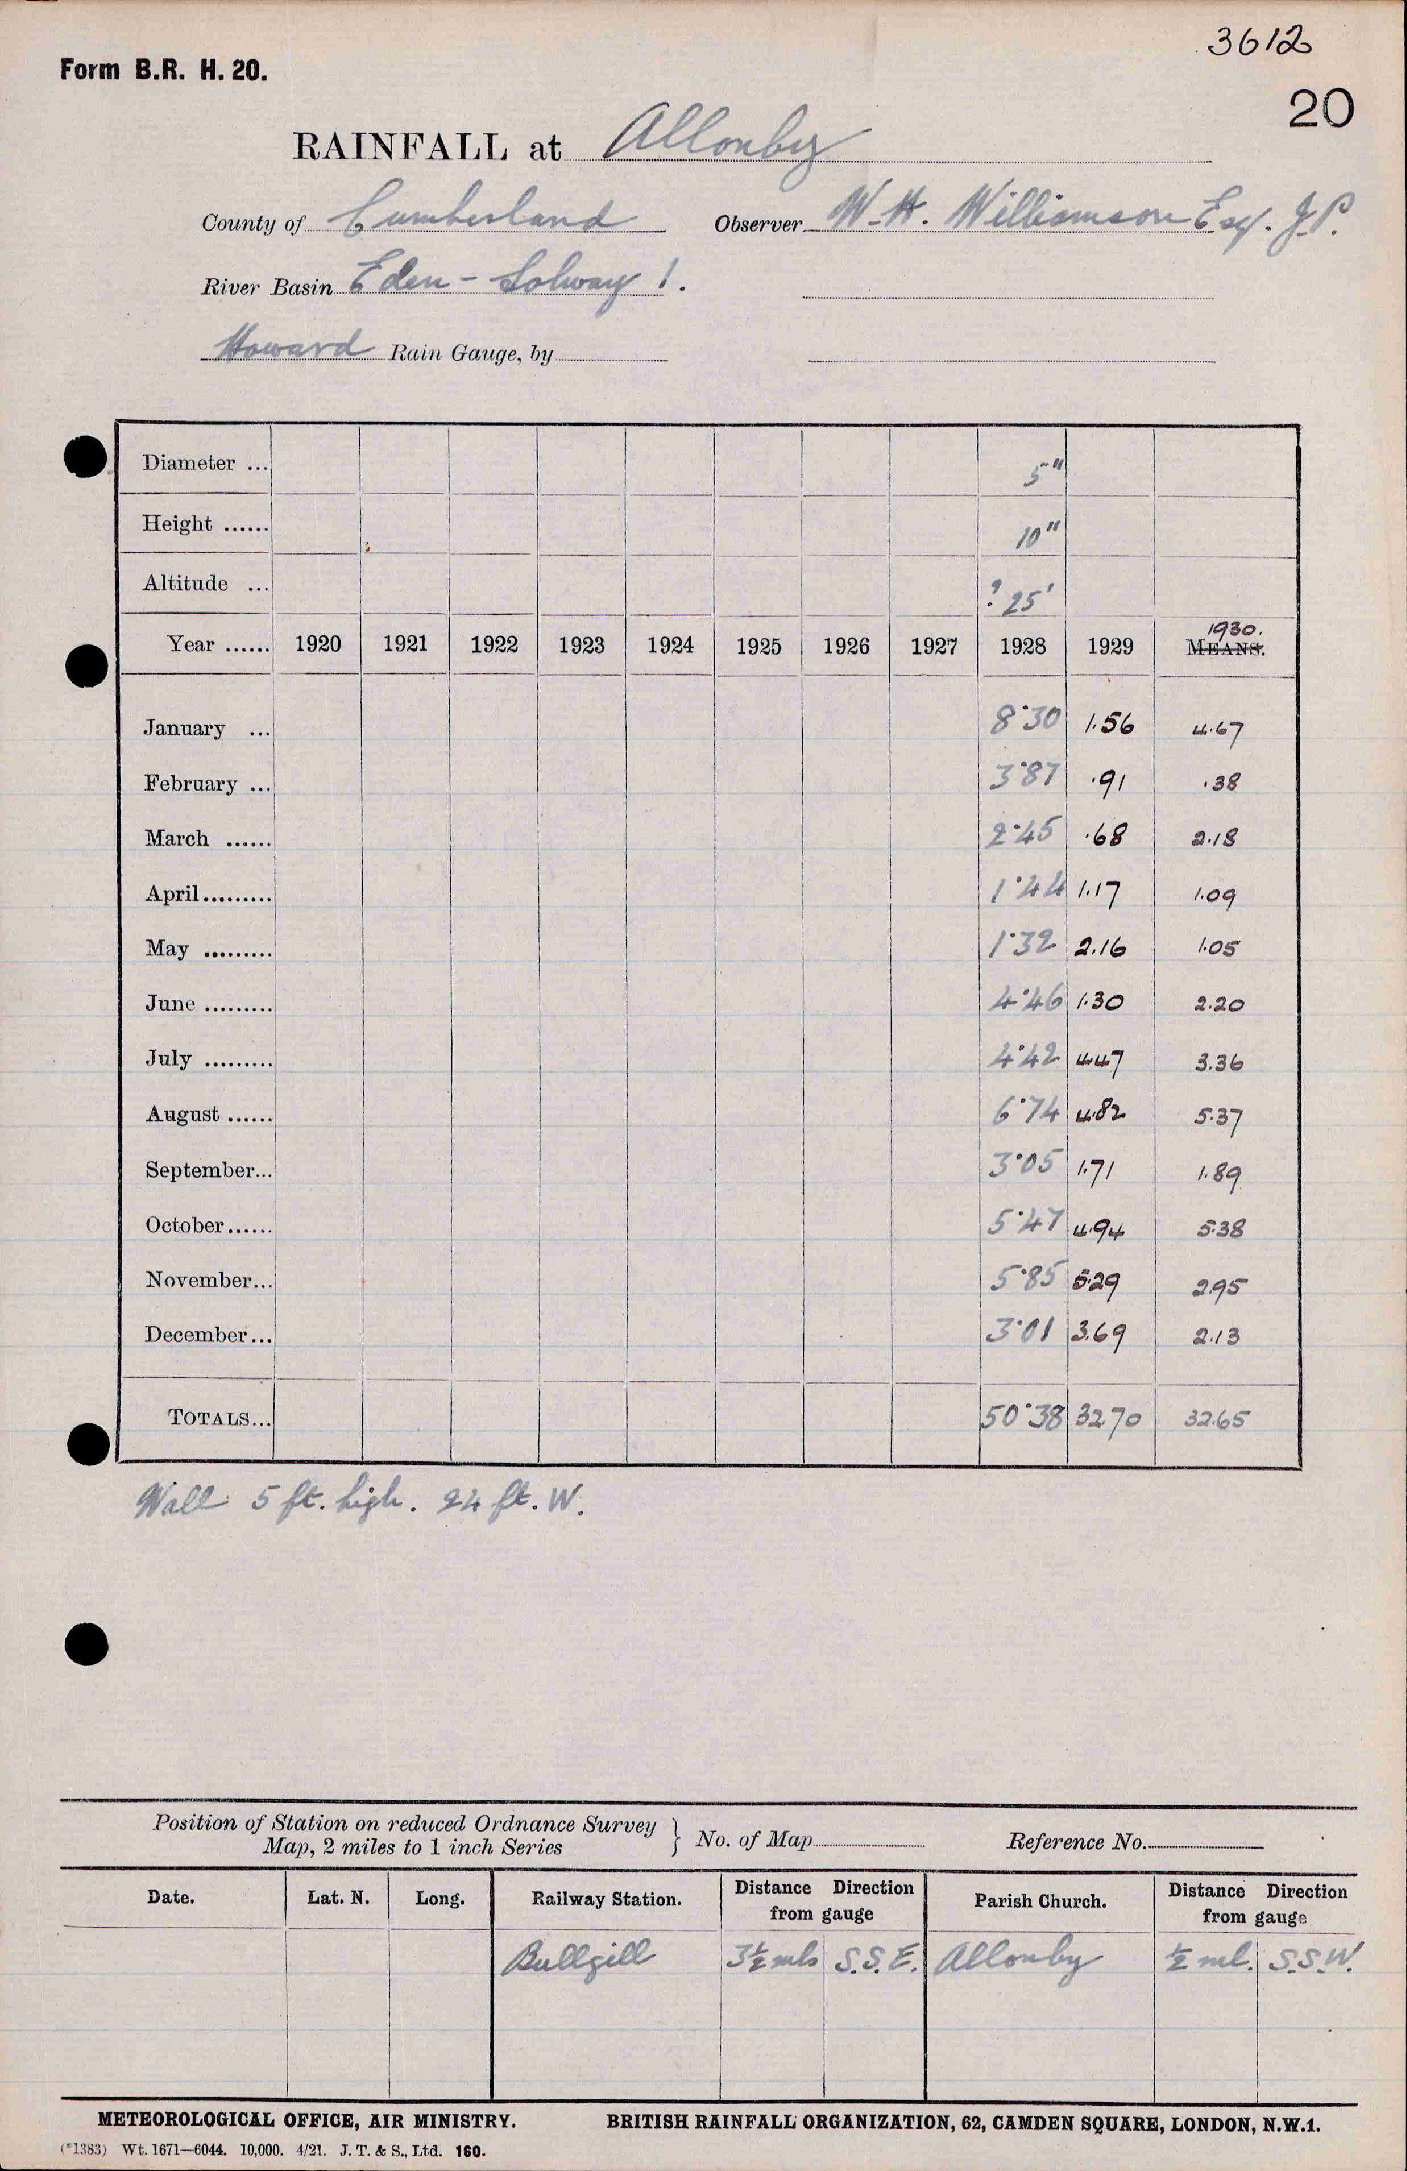 3612
Form B.R. H. 20.
20
RAINFALL at Allonby
County of Cumberland Observer W. H. Williamson Esq. J.P.
River Basin Eden - Solway 1.
Howard Rain Gauge, by
Diameter ... 5"
Height ...... 10"
Altitude ... ? 25'
1930.
Year ...... 1920 1921 1922 1923 1924 1925 1926 1927 1928 1929 MEANS.
January ... 8·30 1.56 4.67
February ... 3·87 .91 .38
March ...... 2·45 .68 2.18
April ......... 1·44 1.17 1.09
May ......... 1·32 2.16 1.05
June ......... 4·46 1.30 2.20
July ......... 4·42 4.47 3.36
August ...... 6·74 4.82 5.37
September... 3·05 1.71 1.89
October ...... 5·47 4.94 5.38
November... 5·85 5.29 2.95
December... 3·01 3.69 2.13
TOTALS... 50·38 32.70 32.65
Wall 5 ft. high. 24 ft. W.
Position of Station on reduced Ordnance Survey
Map, 2 miles to 1 inch Series } No. of Map Reference No.
Date. Lat. N. Long. Railway Station. Distance Direction from gauge Parish Church. Distance Direction from gauge
Bullgill 3½ mls S.S.E. Allonby ½ ml. S.S.W.
METEOROLOGICAL OFFICE, AIR MINISTRY. BRITISH RAINFALL ORGANIZATION, 62, CAMDEN SQUARE, LONDON, N.W.1.
(*1383) Wt. 1671—6044. 10,000. 4/21. J. T. & S., Ltd. 160.